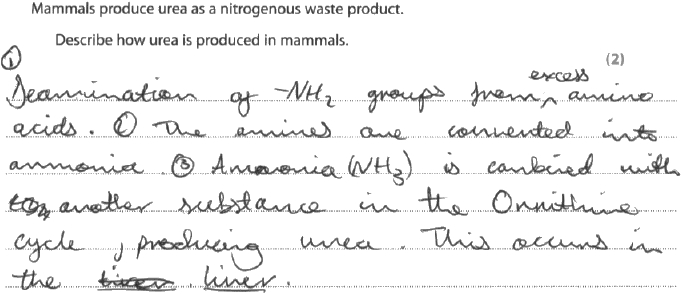 Mammals produce urea as a nitrogenous waste product.
Describe how urea is produced in mammals.
(2)
① excess
Deamination of -NH₂ groups from ^ amino
acids. ② The amines are converted into
ammonia. ③ Ammonia (NH₃) is combined with
another substance in the Ornithine
cycle, producing urea. This occurs in
the liver.